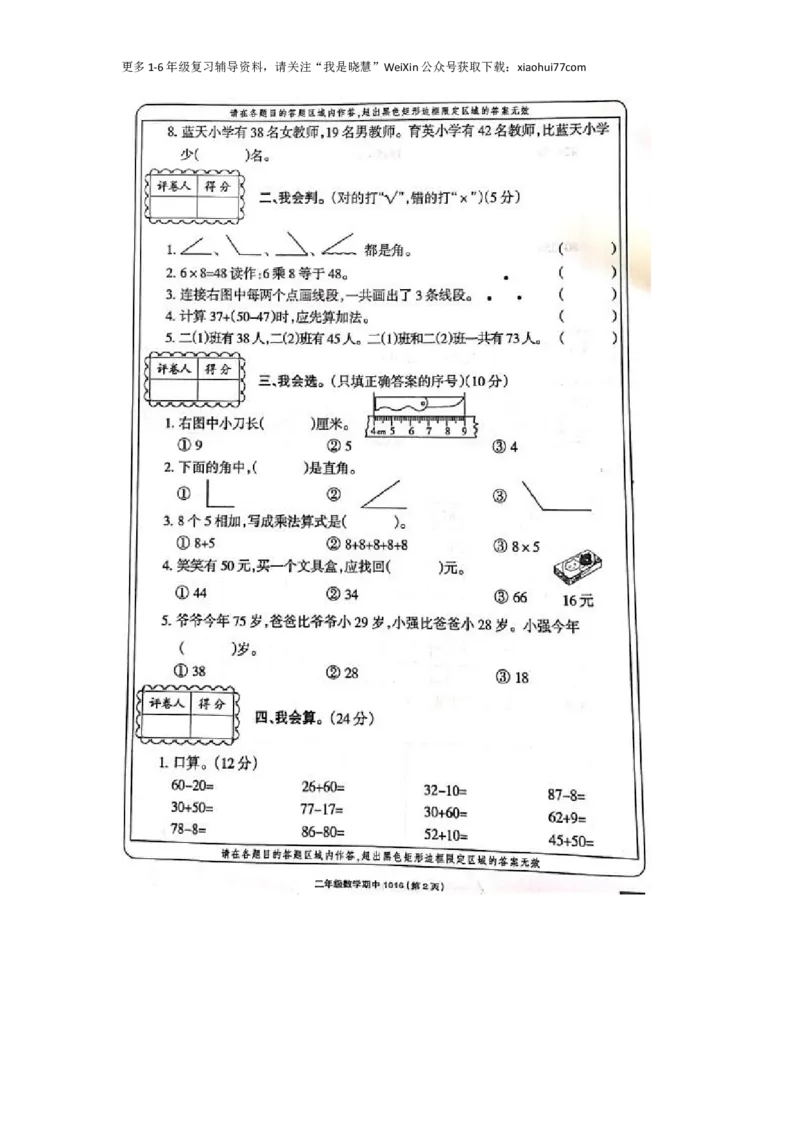 更多 1-6 年级复习辅导资料，请关注“我是晓慧”WeiXin 公众号获取下载：xiaohui77com
请在各题目的答题区域内作答,超出黑色矩形边框限定区域的答案无效
8. 蓝天小学有 38 名女教师,19 名男教师。育英小学有 42 名教师,比蓝天小学
少(　　)名。
评卷人 得分
二、我会判。(对的打“√”,错的打“×”)(5 分)
1. 、 、 、 都是角。 (　　)
2. 6×8=48 读作:6 乘 8 等于 48。 (　　)
3. 连接右图中每两个点画线段,一共画出了 3 条线段。 (　　)
4. 计算 37+(50-47)时,应先算加法。 (　　)
5. 二(1)班有 38 人,二(2)班有 45 人。二(1)班和二(2)班一共有 73 人。 (　　)
评卷人 得分
三、我会选。(只填正确答案的序号)(10 分)
1. 右图中小刀长(　　)厘米。
4cm 5 6 7 8 9
① 9 ② 5 ③ 4
2. 下面的角中,(　　)是直角。
① ② ③
3. 8 个 5 相加,写成乘法算式是(　　)。
① 8+5 ② 8+8+8+8+8 ③ 8×5
4. 笑笑有 50 元,买一个文具盒,应找回(　　)元。
① 44 ② 34 ③ 66 16 元
5. 爷爷今年 75 岁,爸爸比爷爷小 29 岁,小强比爸爸小 28 岁。小强今年
(　　)岁。
① 38 ② 28 ③ 18
评卷人 得分
四、我会算。(24 分)
1. 口算。(12 分)
60-20= 26+60= 32-10= 87-8=
30+50= 77-17= 30+60= 62+9=
78-8= 86-80= 52+10= 45+50=
请在各题目的答题区域内作答,超出黑色矩形边框限定区域的答案无效
二年级数学期中 1016 (第 2 页)